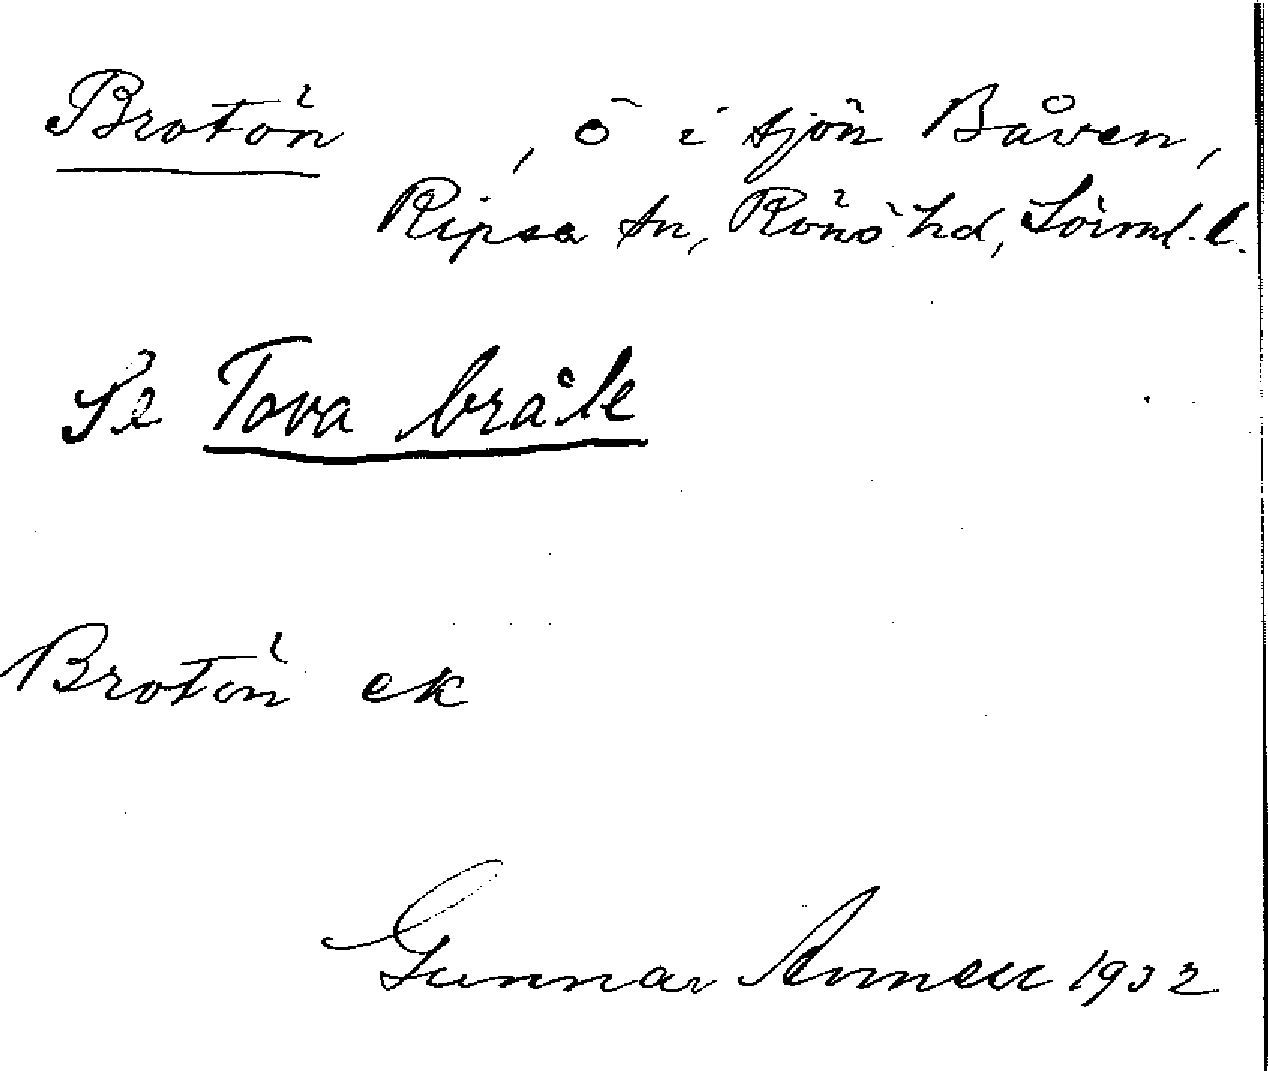 Brotön , ö i sjön Båven,
Ripsa sn, Rönö hd, Sörml. l.
Se Tova bråte
Brotön ek
Gunnar Annell 1932